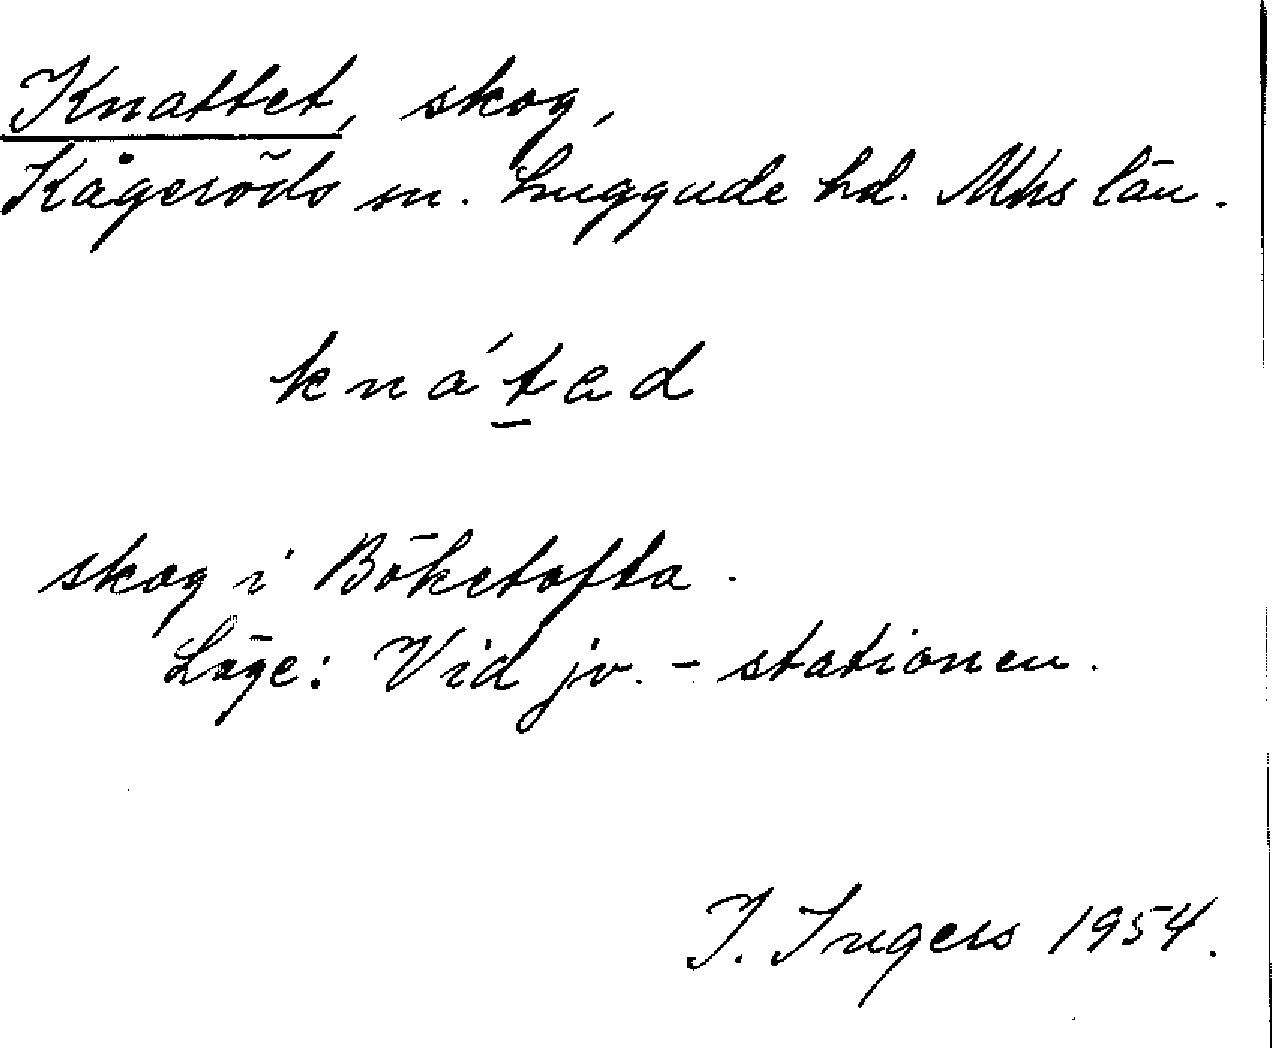 Knattet, skog,
Kågeröds sn. Luggude hd. Mhs län.
knát̲ad
skog i Böketofta.
Läge: Vid jv.-stationen.
I. Ingers 1954.